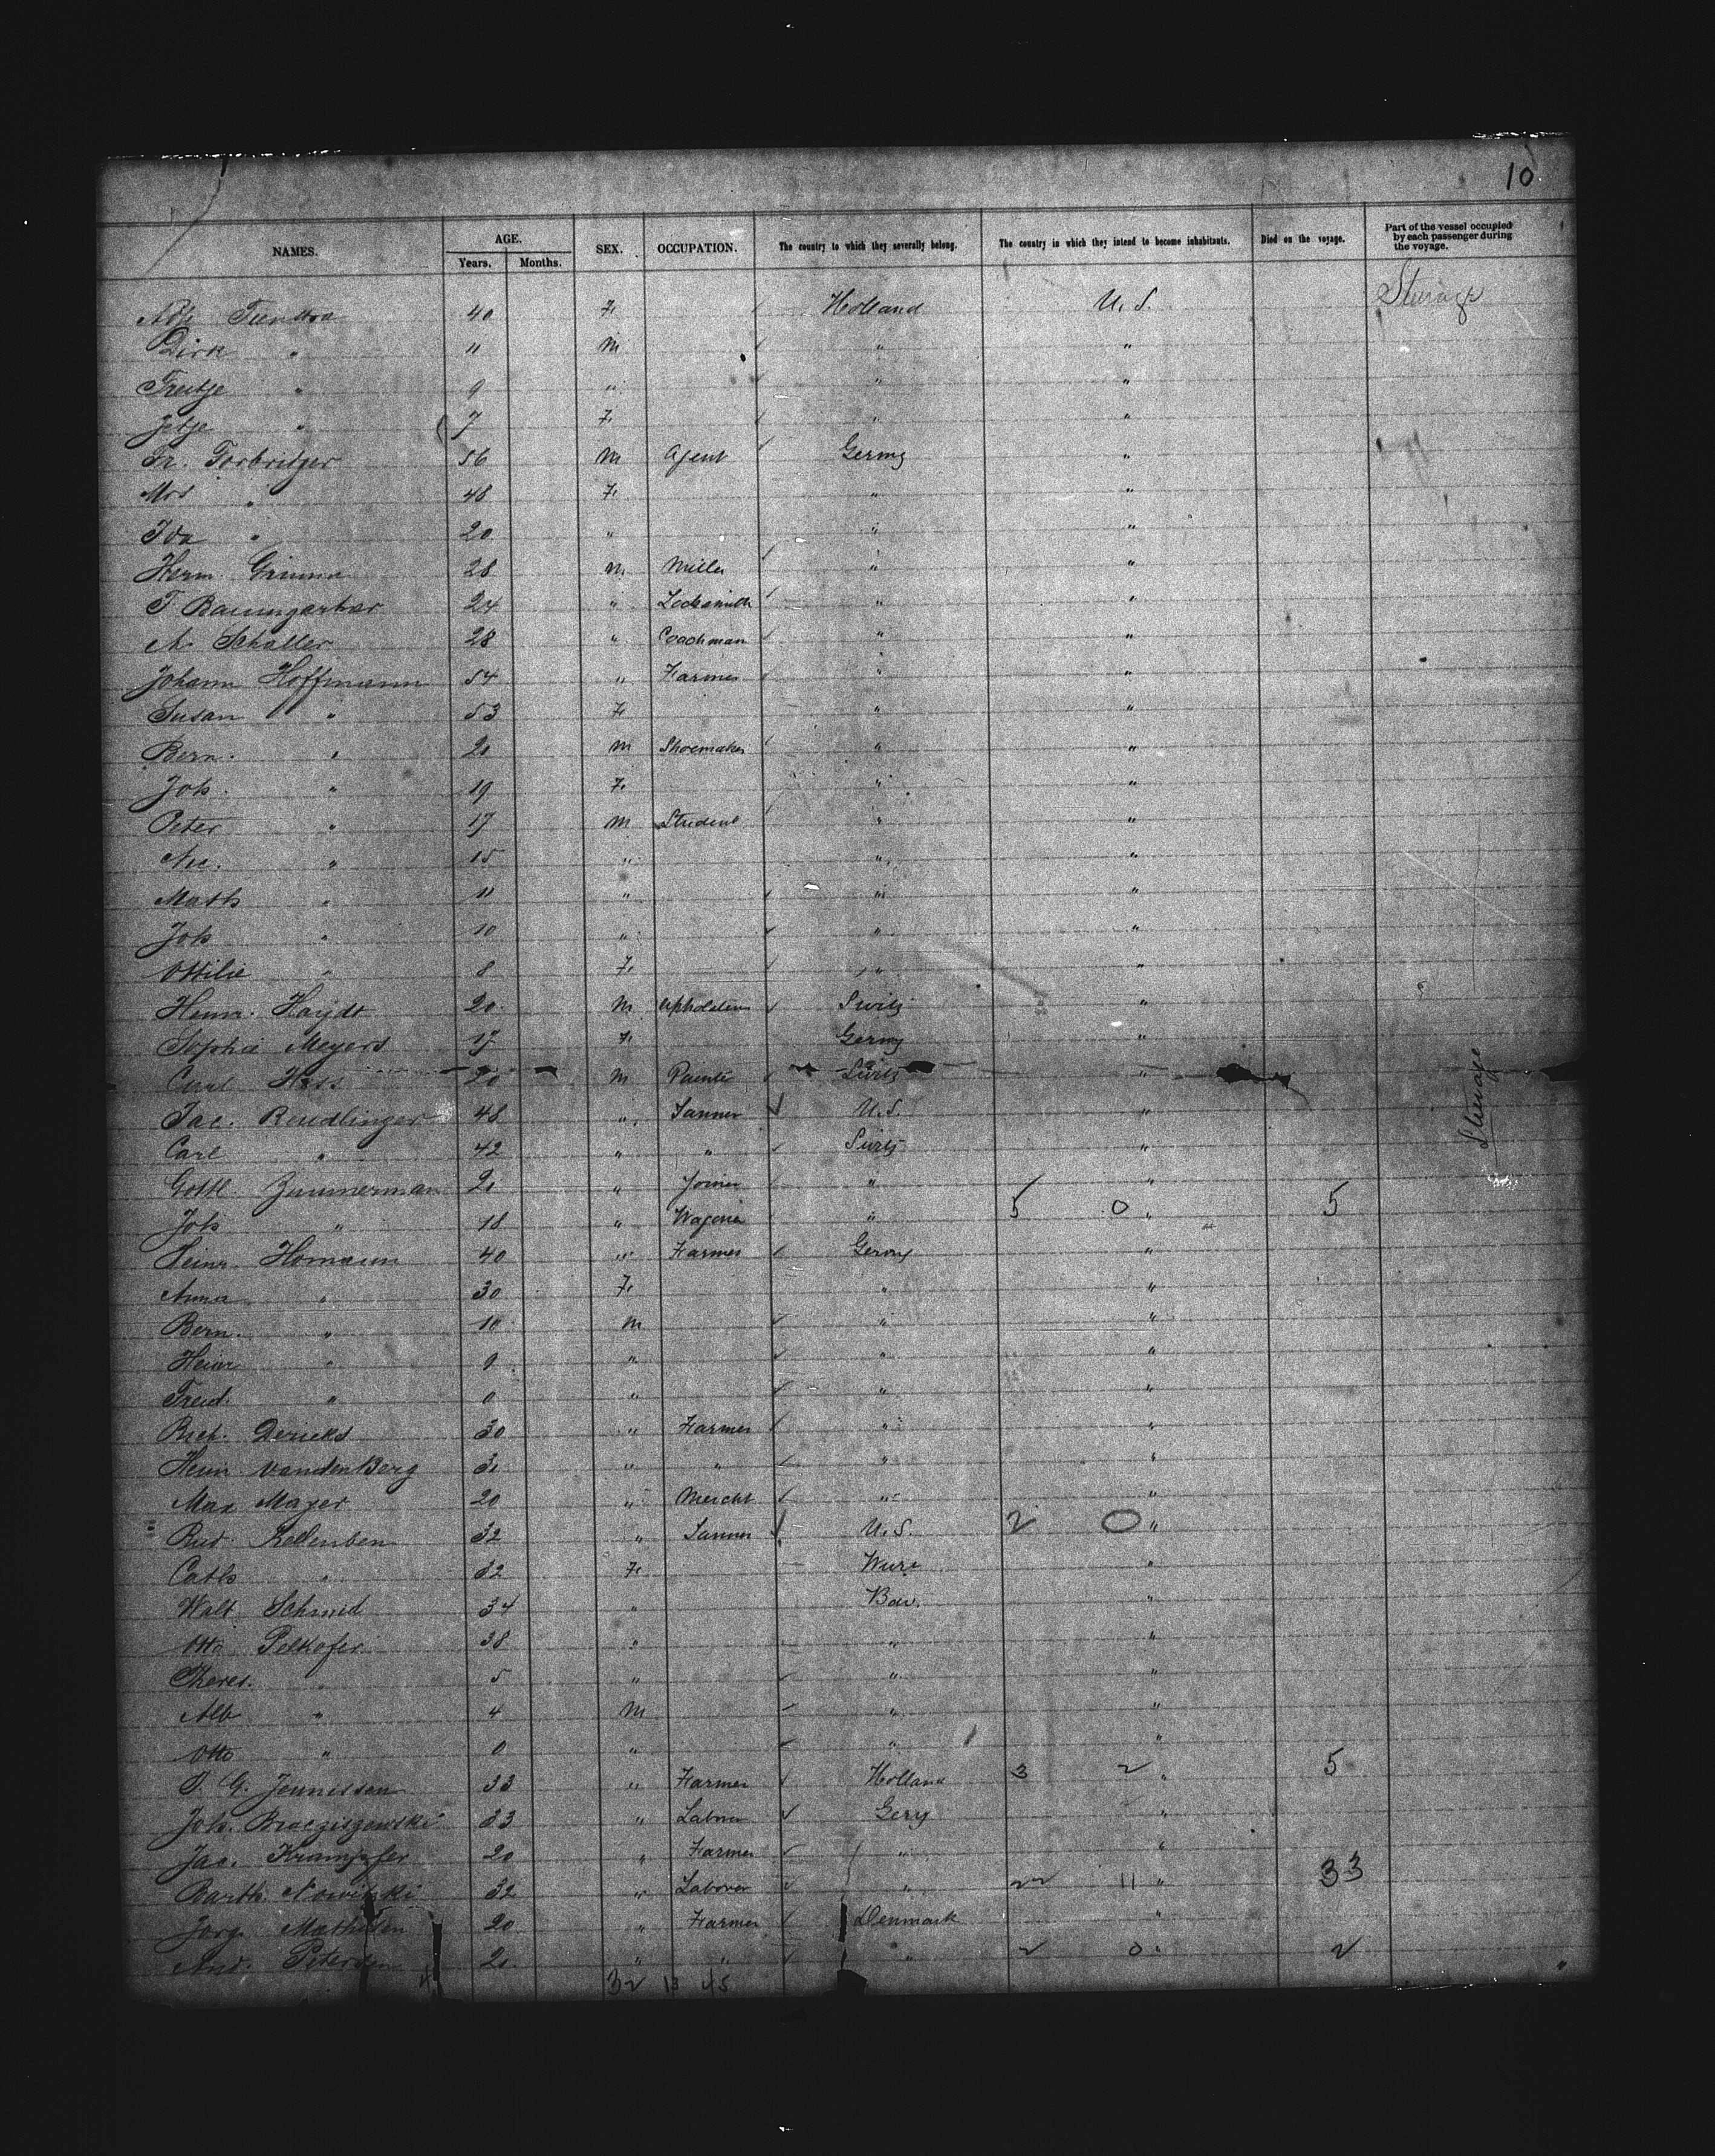 10
NAMES. AGE. Years. Months. SEX. OCCUPATION. The country to which they severally belong. The country in which they intend to become inhabitants. Died on the voyage. Part of the vessel occupied by each passenger during the voyage.
40 F. Holland U. S. Steerage
Dirk " 11 M " "
" 9 " " "
Jetje " 7 F. " "
Fr. Torbritzer 56 M Agent Germy "
Mrs " 48 F. " "
Ida " 20 " " "
Herm. Grimm 28 M. Miller " "
F Baumgartner 24 " Locksmith " "
A. Schaller 28 " Coachman " "
Johann Hoffmann 54 " Farmer " "
Susan " 53 F. " "
Bern. " 20 M Shoemaker " "
Joh. " 19 F. " "
Peter " 17 M Student " "
Nic. " 15 " " "
Math " 11 " " "
Joh " 10 " " "
Ottilie " 8 F. " "
Haydt 20 M Upholsterer Switz "
Sophia Meyers 17 F. Germy "
Carl Hess 20 M Painter Switz "
Jac. Reudlinger 48 " Tanner U.S. " Steerage
Carl " 42 " " Switz "
Gottl. Zimmerman 21 " Joiner " "
Joh " 18 " " 5 0 " 5
Heinr. Homann 40 " Farmer Germy "
Anna " 30 F. " "
Bern. " 10 M " "
Heinr " 9 " " "
" 0 " " "
Rich. Dericks 30 " Farmer " "
Heinr. vandenBerg 31 " " " "
Max Mayer 20 " Mercht " "
Rud. 32 " Tanner U.S. 2 0 "
Cath " 32 F. Wurt "
Walt. Schmid 34 " Bav. "
Otto Pelkofer 38 " " "
Theres. " 5 " " "
Alb " 4 M " "
Otto " 0 " " "
G. Jennissen 33 " Farmer Holland 3 2 " 5
Joh. 33 " Labrer Gery "
Jac. Krampfer 20 " Farmer " "
Barth. Nowitzki 32 " Laborer " 22 11 " 33
Jorg. Mathisen 20 " Farmer Denmark "
And. Petersen 21 " " " 2 0 " 2
32 13 45